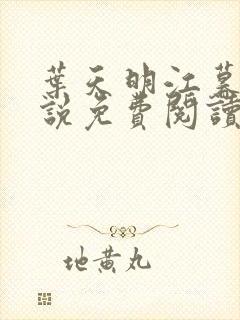 葉天明江慕
說免費閱讀
地黄丸